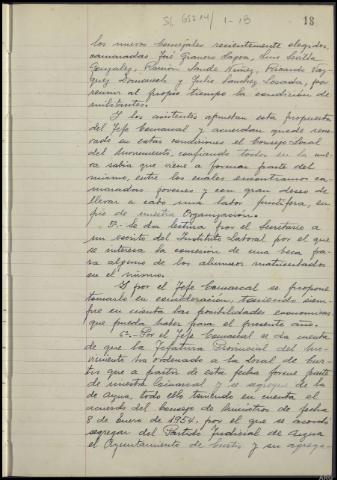 SC 68214/1-18
18
los nuevos Concejales recientemente elegidos,
camaradas José Granero Lagoa, Luis Sevilla
Gonzalez, Ramón Naude Nuñez, Ricardo Vaz-
quez Doniarech y Julio Sanchez Losada, por
reunir al propio tiempo la condición de
militantes.
Y los asistentes aprueban esta propuesta
del Jefe Comarcal y acuerdan quede reno-
vado en estas condiciones el Consejo Local
del Movimiento, confiando todos en la nue-
va sabia que viene a formar parte del
mismo, entre los cuales encontramos ca-
maradas jovenes y con gran deseo de
llevar a cabo una labor fructifera, en
pro de nuestra Organización.
5º.- Se da lectura por el Secretario a
un escrito del Instituto Laboral por el que
se interesa la concesión de una beca pa-
ra alguno de los alumnos matriculados
en el mismo.
Y por el Jefe Comarcal se propone
tomarlo en consideración, teniendo siem-
pre en cuenta las posibilidades economicas
que pueda haber para el presente año.
6º.- Por el Jefe Comarcal se da cuenta
de que la Jefatura Provincial del Mo-
vimiento ha ordenado a la Local de Cur-
tis que a partir de esta fecha forme parte
de nuestra Comarcal y se segregue de la
de Arzua, todo ello teniendo en cuenta el
acuerdo del Consejo de Ministros de fecha
8 de Enero de 1954, por el que se acordó
segregar del Partido Judicial de Arzua
el Ayuntamiento de Curtis y su agrega-